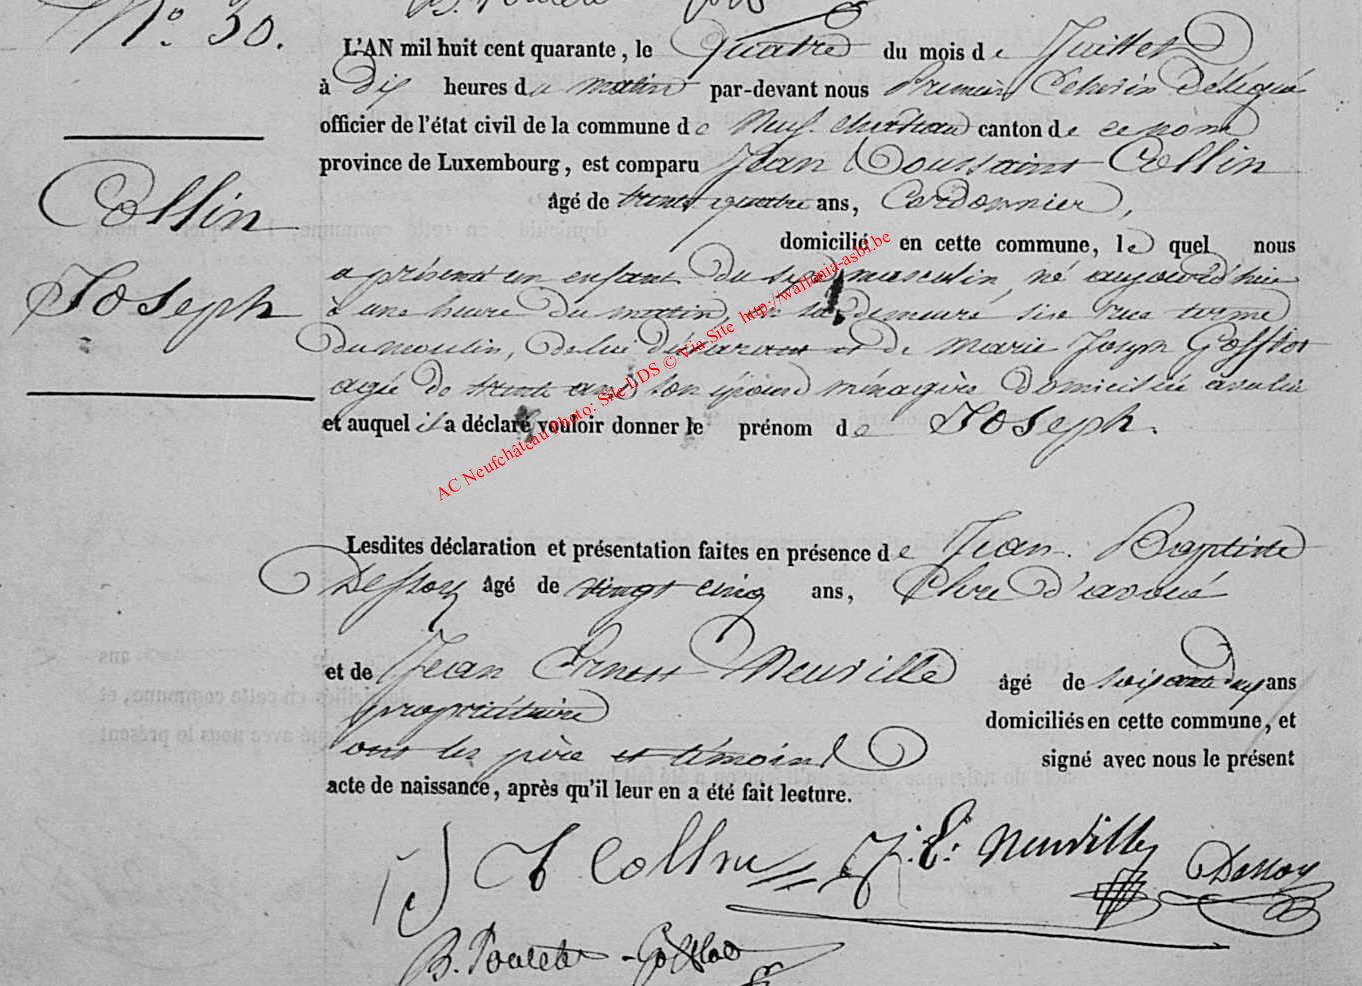 N.° 30.
L'AN mil huit cent quarante, le Quatre du mois de Juillet
à dix heures du matin par-devant nous Premier Echevin Délégué
officier de l'état civil de la commune de Neufchateau canton de ce nom
province de Luxembourg, est comparu Jean Toussaint Collin
âgé de trente quatre ans, Cordonnier,
domicilié en cette commune, le quel nous
Collin
Joseph
a présenté un enfant du sexe masculin, né aujourd'hui
à une heure du matin, en sa demeure, sise rue terme
du moulin, de lui déclarant et de Marie Joseph Gofflot
agée de trente ans son épouse ménagère domiciliée avec lui
et auquel il a déclaré vouloir donner le prénom de Joseph.
AC Neufchâteau Photo: Site LDS © Via Site http://wallonia-asbl.be
Lesdites déclaration et présentation faites en présence de Jean Baptiste
Dessoy âgé de vingt cinq ans, Clerc d'avoué
et de Jean Ernest Neuville âgé de soixante deux ans
propriétaire domiciliés en cette commune, et
ont les père et témoins signé avec nous le présent
acte de naissance, après qu'il leur en a été fait lecture.
Collin J. E. Neuville Dessoy
B. Poncelet-Gofflot